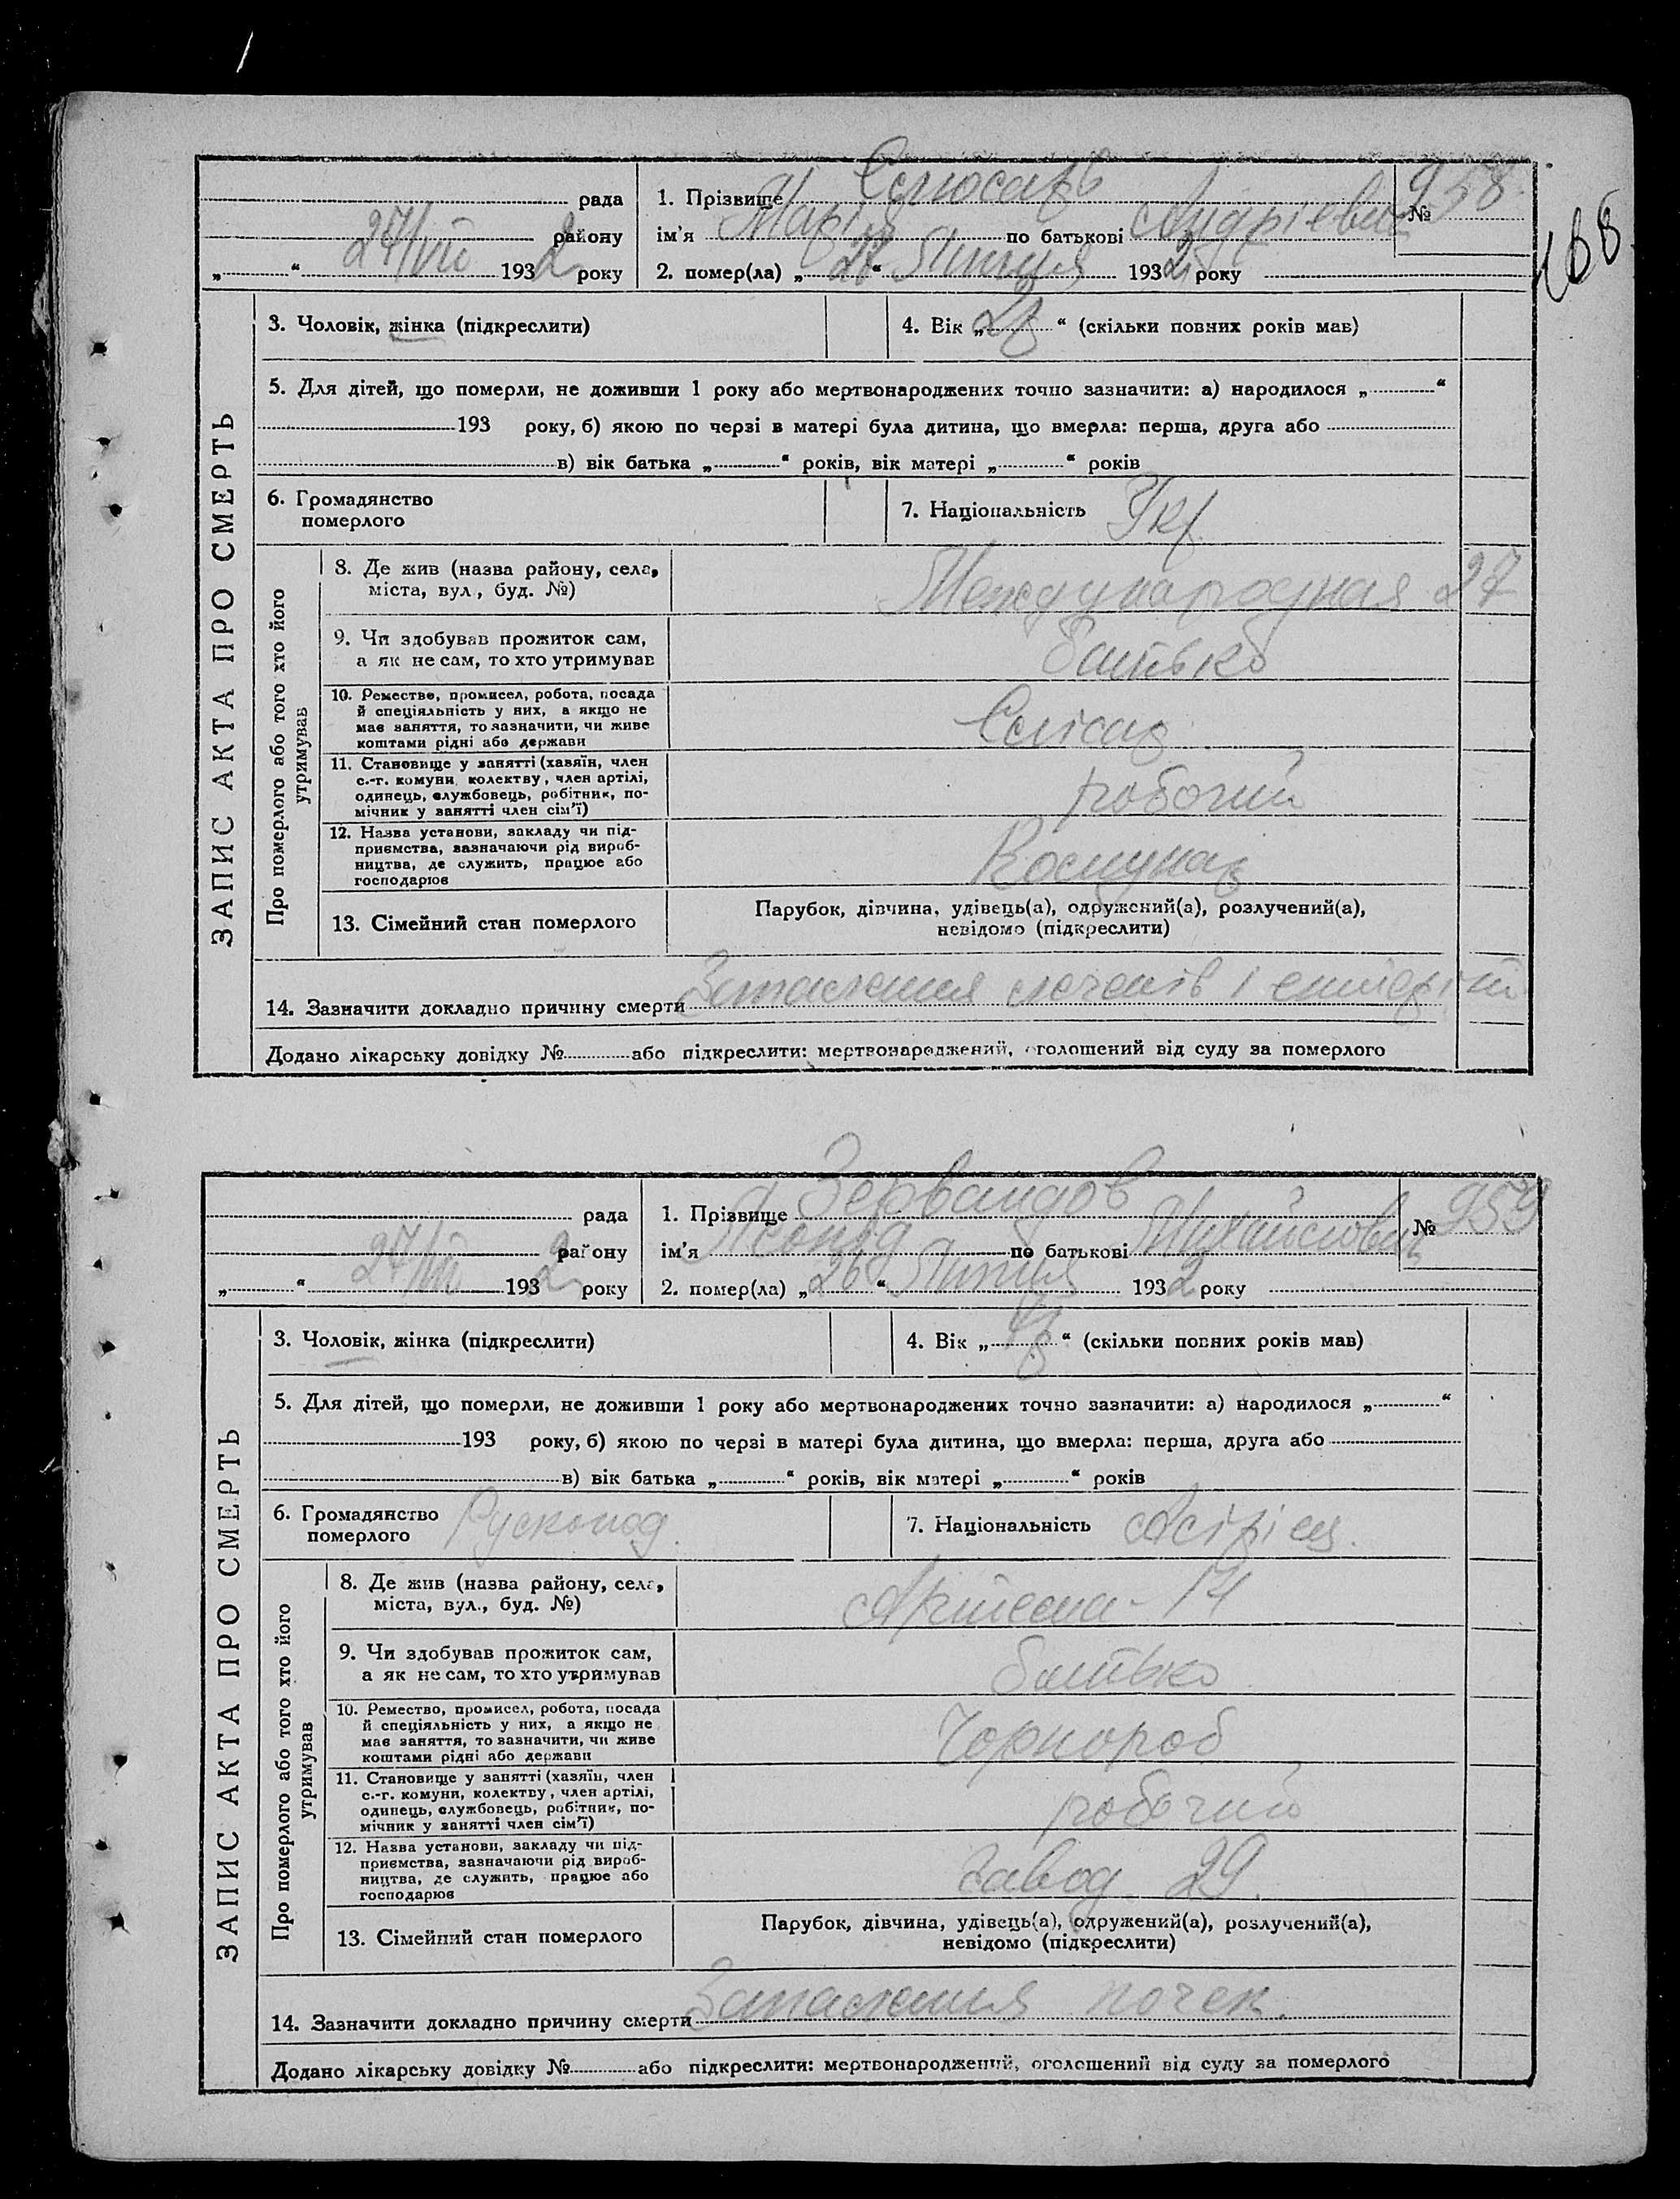 168
ЗАПИС АКТА ПРО СМЕРТЬ
рада
27/VII району
„ “ 1932 року
1. Прізвище Слюсарь
ім'я Марія по батькові Андріевна
2. помер(ла) „27“ Липня 1932 року
№ 958
3. Чоловік, жінка (підкреслити)
4. Вік „ “ (скільки повних років мав)
5. Для дітей, що померли, не доживши 1 року або мертвонароджених точно зазначити: а) народилося „ “
193 року, б) якою по черзі в матері була дитина, що вмерла: перша, друга або
в) вік батька „ “ років, вік матері „ “ років
6. Громадянство
померлого
7. Національність Укр.
Про померлого або того хто його
утримував
8. Де жив (назва району, села,
міста, вул., буд. №)
Международная 27
9. Чи здобував прожиток сам,
а як не сам, то хто утримував
батько
10. Ремество, промисел, робота, посада
й спеціяльність у них, а якщо не
має заняття, то зазначити, чи живе
коштами рідні або держави
Слісар
11. Становище у занятті (хазяїн, член
с.-г. комуни, колектву, член артілі,
одинець, службовець, робітник, по-
мічник у занятті член сім'ї)
робочий
12. Назва установи, закладу чи під-
приємства, зазначаючи рід вироб-
ництва, де служить, працює або
господарює
Комунар
13. Сімейний стан померлого
Парубок, дівчина, удівець(а), одружений(а), розлучений(а),
невідомо (підкреслити)
14. Зазначити докладно причину смерти Запалення легенів і
Додано лікарську довідку № або підкреслити: мертвонароджений, оголошений від суду за померлого
ЗАПИС АКТА ПРО СМЕРТЬ
рада
27/VII району
„ “ 1932 року
1. Прізвище Зервандов
ім'я Леонід по батькові Михайлович
2. помер(ла) „26“ Липня 1932 року
№ 959
3. Чоловік, жінка (підкреслити)
4. Вік „ “ (скільки повних років мав)
5. Для дітей, що померли, не доживши 1 року або мертвонароджених точно зазначити: а) народилося „ “
193 року, б) якою по черзі в матері була дитина, що вмерла: перша, друга або
в) вік батька „ “ років, вік матері „ “ років
6. Громадянство
померлого
Рускопод.
7. Національність Асіріец.
Про померлого або того хто його
утримував
8. Де жив (назва району, села,
міста, вул., буд. №)
Артема - 14
9. Чи здобував прожиток сам,
а як не сам, то хто утримував
батько
10. Ремество, промисел, робота, посада
й спеціяльність у них, а якщо не
має заняття, то зазначити, чи живе
коштами рідні або держави
Чорнороб
11. Становище у занятті (хазяїн, член
с.-г. комуни, колектву, член артілі,
одинець, службовець, робітник, по-
мічник у занятті член сім'ї)
робочий
12. Назва установи, закладу чи під-
приємства, зазначаючи рід вироб-
ництва, де служить, працює або
господарює
завод 29.
13. Сімейний стан померлого
Парубок, дівчина, удівець(а), одружений(а), розлучений(а),
невідомо (підкреслити)
14. Зазначити докладно причину смерти Запалення почек.
Додано лікарську довідку № або підкреслити: мертвонароджений, оголошений від суду за померлого